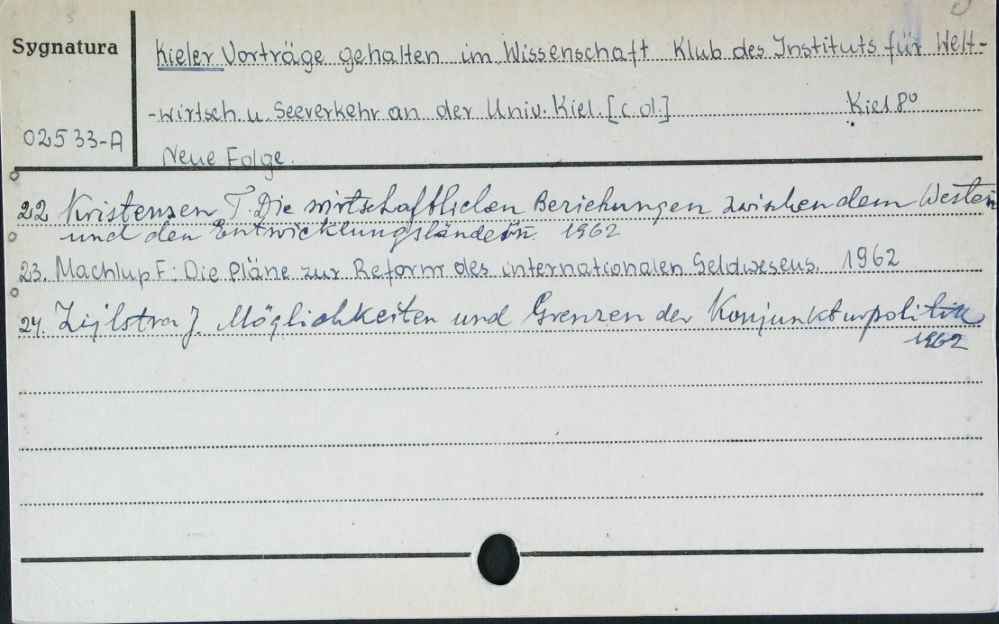 Sygnatura
Kieler Vorträge gehalten im Wissenschaft Klub des Instituts für Welt-
-wirtsch. u. Seeverkehr an der Univ. Kiel. [c.d.] Kiel 8°
02533-A
Neue Folge.
22 Kristensen T. Die wirtschaftlichen Beziehungen zwischen dem Westen
und den Entwicklungsländern. 1962
23. Machlup F: Die Pläne zur Reform des internationalen Geldwesens. 1962
24. Zijlstra J. Möglichkeiten und Grenzen der Konjunkturpolitik
1962